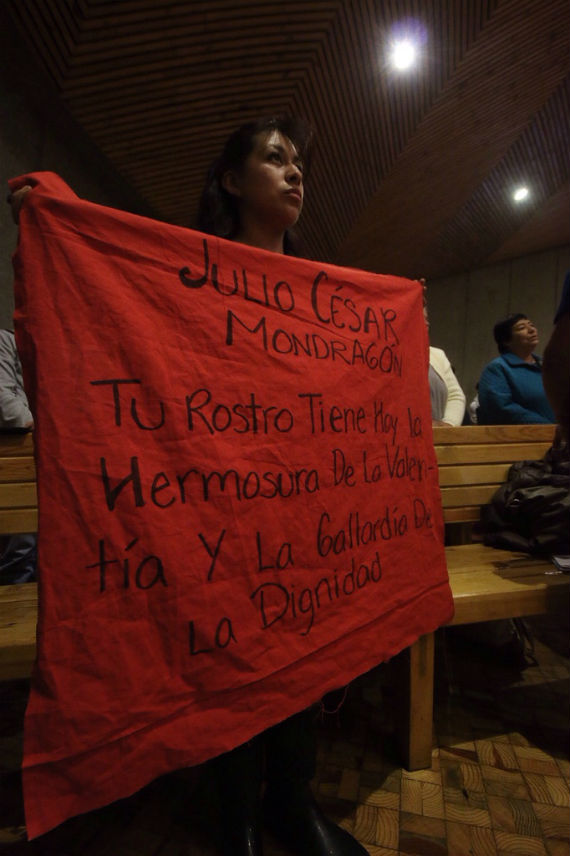 Julio César
Mondragón
Tu Rostro Tiene Hoy la
Hermosura De La Valen-
tía Y La Gallardía De
La Dignidad